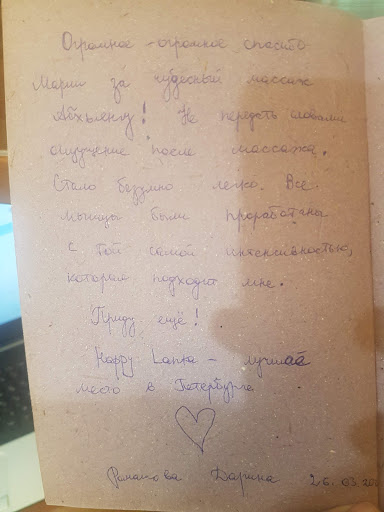 Огромное-огромное спасибо
Марии за чудесный массаж
Абхъянгу! Не передать словами
ощущение после массажа.
Стало безумно легко. Все
мышцы были проработаны
с той самой интенсивностью,
которая подходит мне.
Приду ещё!
Happy Lanka – лучшее
место в Петербурге
Дарина 26.03.20